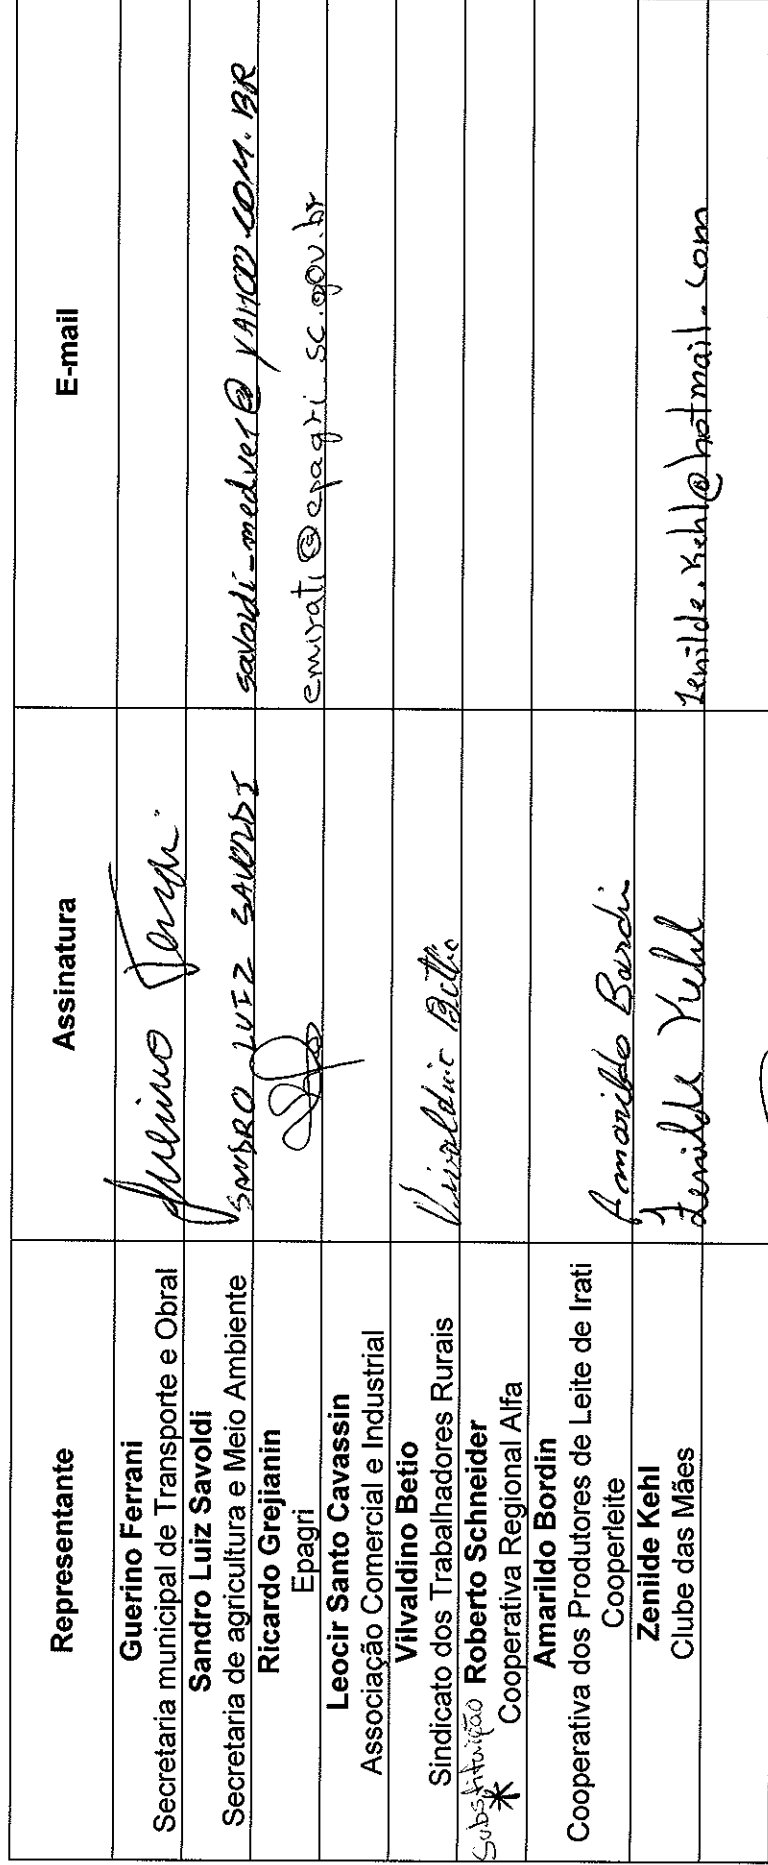 Representante
Assinatura
E-mail
Guerino Ferrani
Secretaria municipal de Transporte e Obral
Sandro Luiz Savoldi
Secretaria de agricultura e Meio Ambiente
SANDRO LUIZ SAVOLDI
savoldi-medvet@YAHOO.COM.BR
Ricardo Grejianin
Epagri
emirati@epagri.sc.gov.br
Leocir Santo Cavassin
Associação Comercial e Industrial
Vilvaldino Betio
Sindicato dos Trabalhadores Rurais
Substituição Roberto Schneider
* Cooperativa Regional Alfa
Amarildo Bordin
Cooperativa dos Produtores de Leite de Irati
Cooperleite
Amarildo Bordin
Zenilde Kehl
Clube das Mães
Zenilde Kehl
zenilde.kehl@hotmail.com